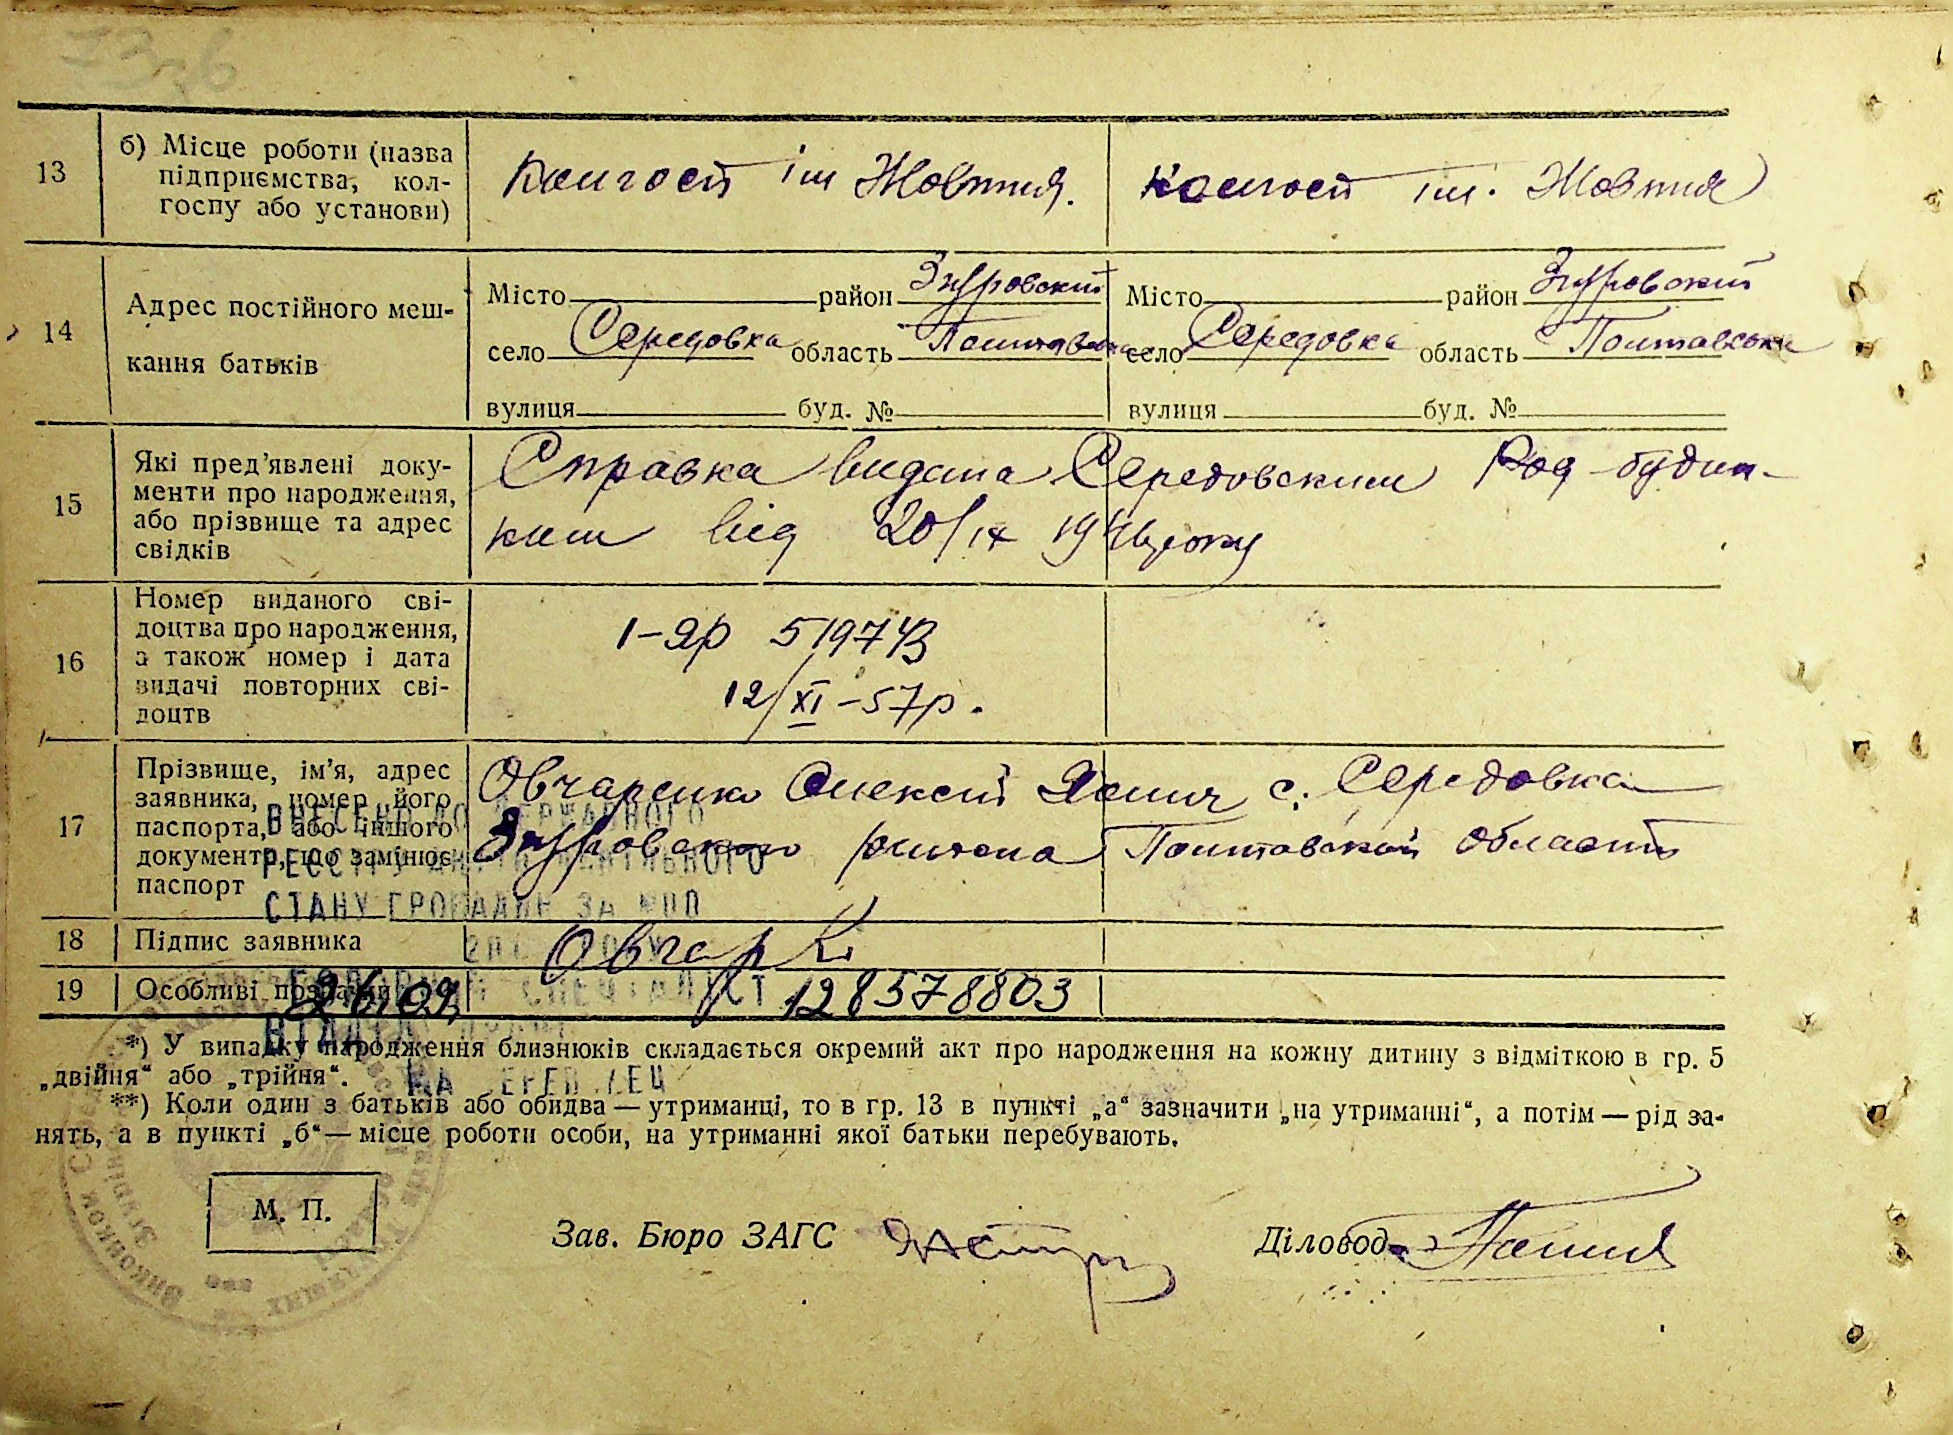 13
б) Місце роботи (назва
підприємства, кол-
госпу або установи)
Колгосп ім Жовтня.
Колгосп ім. Жовтня
14
Адрес постійного меш-
кання батьків
Місто район Згуровский
село Середовка область Полтавська
вулиця буд. №
Місто район Згуровский
село Середовка область Полтавськи
вулиця буд. №
15
Які пред’явлені доку-
менти про народження,
або прізвище та адрес
свідків
Справка видана Середовским Род-будин-
ким від 20/IX року
16
Номер виданого сві-
доцтва про народження,
а також номер і дата
видачі повторних сві-
доцтв
1-ЯР 519743
12/XI-57р.
17
Прізвище, ім’я, адрес
заявника, номер його
паспорта, або іншого
документа, що замінює
паспорт
Овчаренко Олексій с. Середовка
Згуровского района Полтавской области
ВНЕСЕНО ДО ДЕРЖАВНОГО
РЕЄСТРУ АКТІВ ЦИВІЛЬНОГО
СТАНУ ГРОМАДЯН ЗА
18
Підпис заявника
Овчар
19
Особливі
СПЕЦІАЛІСТ
128578803
*) У випадку народження близнюків складається окремий акт про народження на кожну дитину з відміткою в гр. 5
„двійня“ або „трійня“.
**) Коли один з батьків або обидва — утриманці, то в гр. 13 в пункті „а“ зазначити „на утриманні“, а потім — рід за-
нять, а в пункті „б“ — місце роботи особи, на утриманні якої батьки перебувають.
М. П.
Зав. Бюро ЗАГС
Діловод